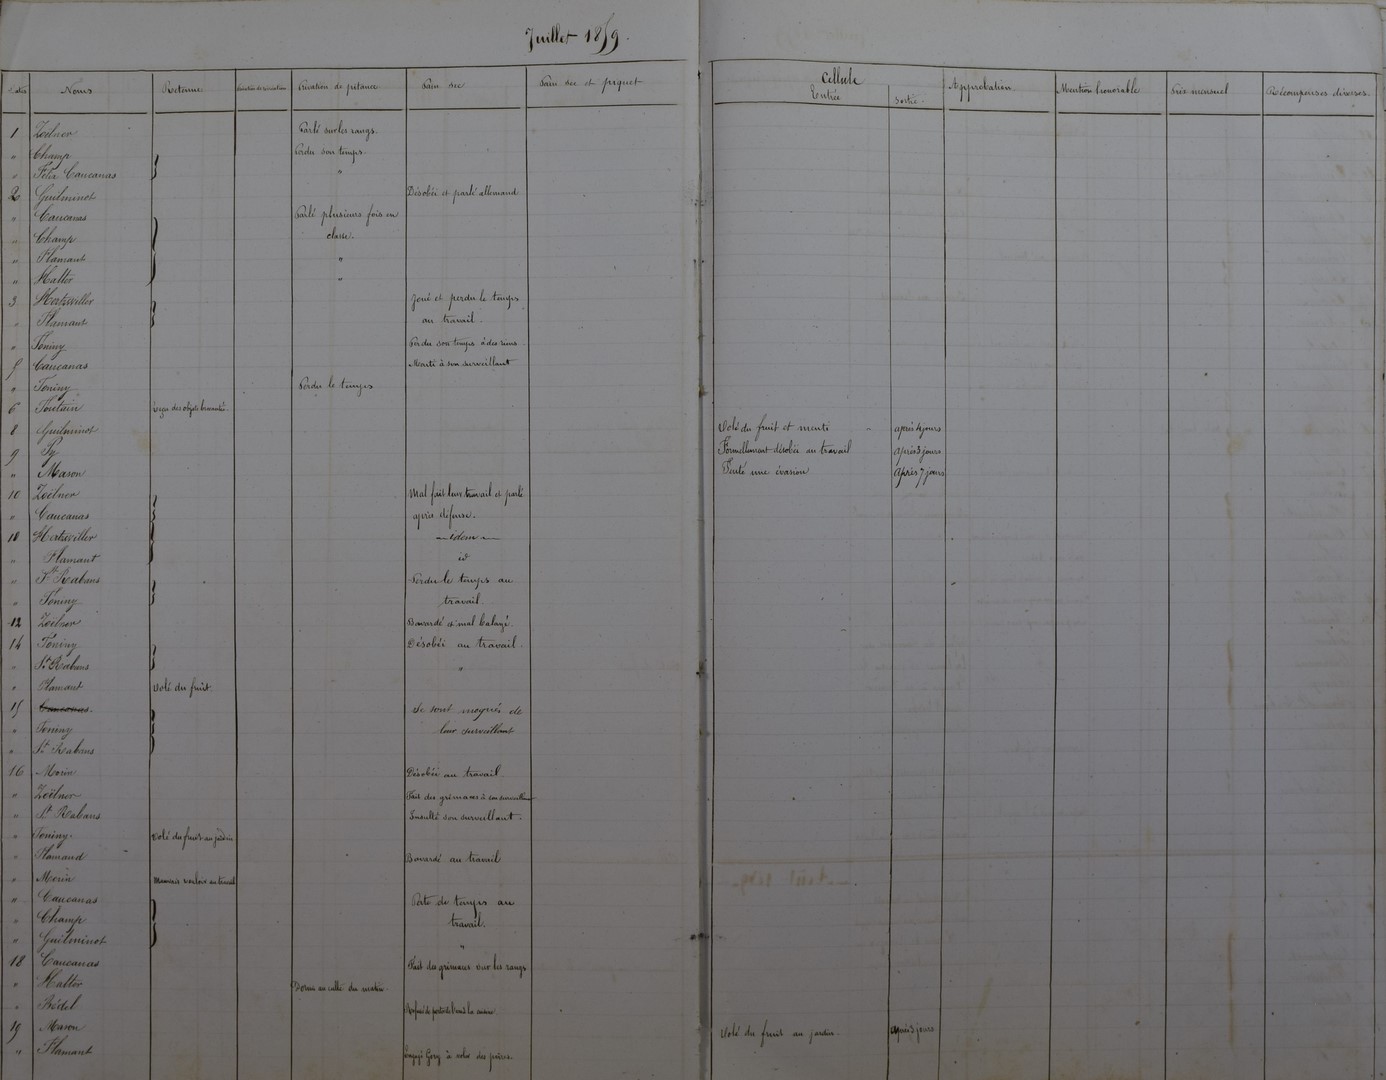 Juillet 1859.
Dates Noms Retenue Privation de récréation Privation de pitance Pain sec Pain sec et piquet Cellule Approbation Mention honorable Prix mensuel Récompenses diverses.
Entrée Sortie
1 Zeilner Parlé sur les rangs.
" Champ Perdu son temps.
" Félix Caucanas "
2 Guilminot Désobéi et parlé allemand
" Caucanas Parlé plusieurs fois en
" Champ classe.
" Flamant "
" Halter "
3 Hertzwiller Joué et perdu le temps
" Flamant au travail.
" Foniny Perdu son temps à des riens.
5 Caucanas Menti à son surveillant
" Foniny Perdu le temps
6 Toutain Reçu des objets
8 Guilminot Volé du fruit et menti après 4 jours
9 Py Formellement désobéi au travail après 3 jours
" Mason Tenté une évasion après 7 jours
10 Zeilner Mal fait leur travail et parlé
" Caucanas après défense.
10 Hertzwiller idem
" Flamant id
" St Rabans Perdu le temps au
" Foniny travail.
12 Zeilner Bavardé et mal balayé.
14 Foniny Désobéi au travail.
" St Rabans "
" Flamant Volé du fruit
15 Caucanas. Se sont moqués de
" Foniny leur surveillant
" St Rabans
16 Morin Désobéi au travail
" Zeilner Fait des grimaces à son surveillant
" St Rabans Insulté son surveillant.
" Foniny. Volé du fruit au jardin
" Flamand Bavardé au travail
" Morin Mauvais vouloir au travail
" Caucanas Perte de temps au
" Champ travail.
" Guilminot "
18 Caucanas Fait des grimaces sur les rangs
" Halter Dormi au culte du matin.
" Bédel Refusé de porter
19 Mason Volé du fruit au jardin. après 3 jours
" Flamant Engagé Gony à voler des poires.